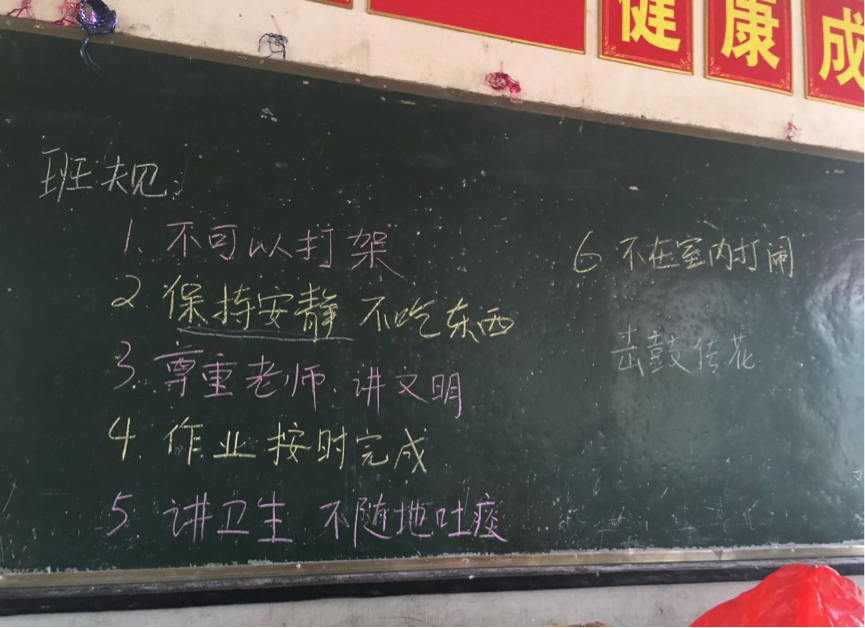 健康成
班规:
1. 不可以打架
2 保持安静 不吃东西
3. 尊重老师.讲文明
4. 作业按时完成
5. 讲卫生 不随地吐痰
6 不在室内打闹
击鼓传花